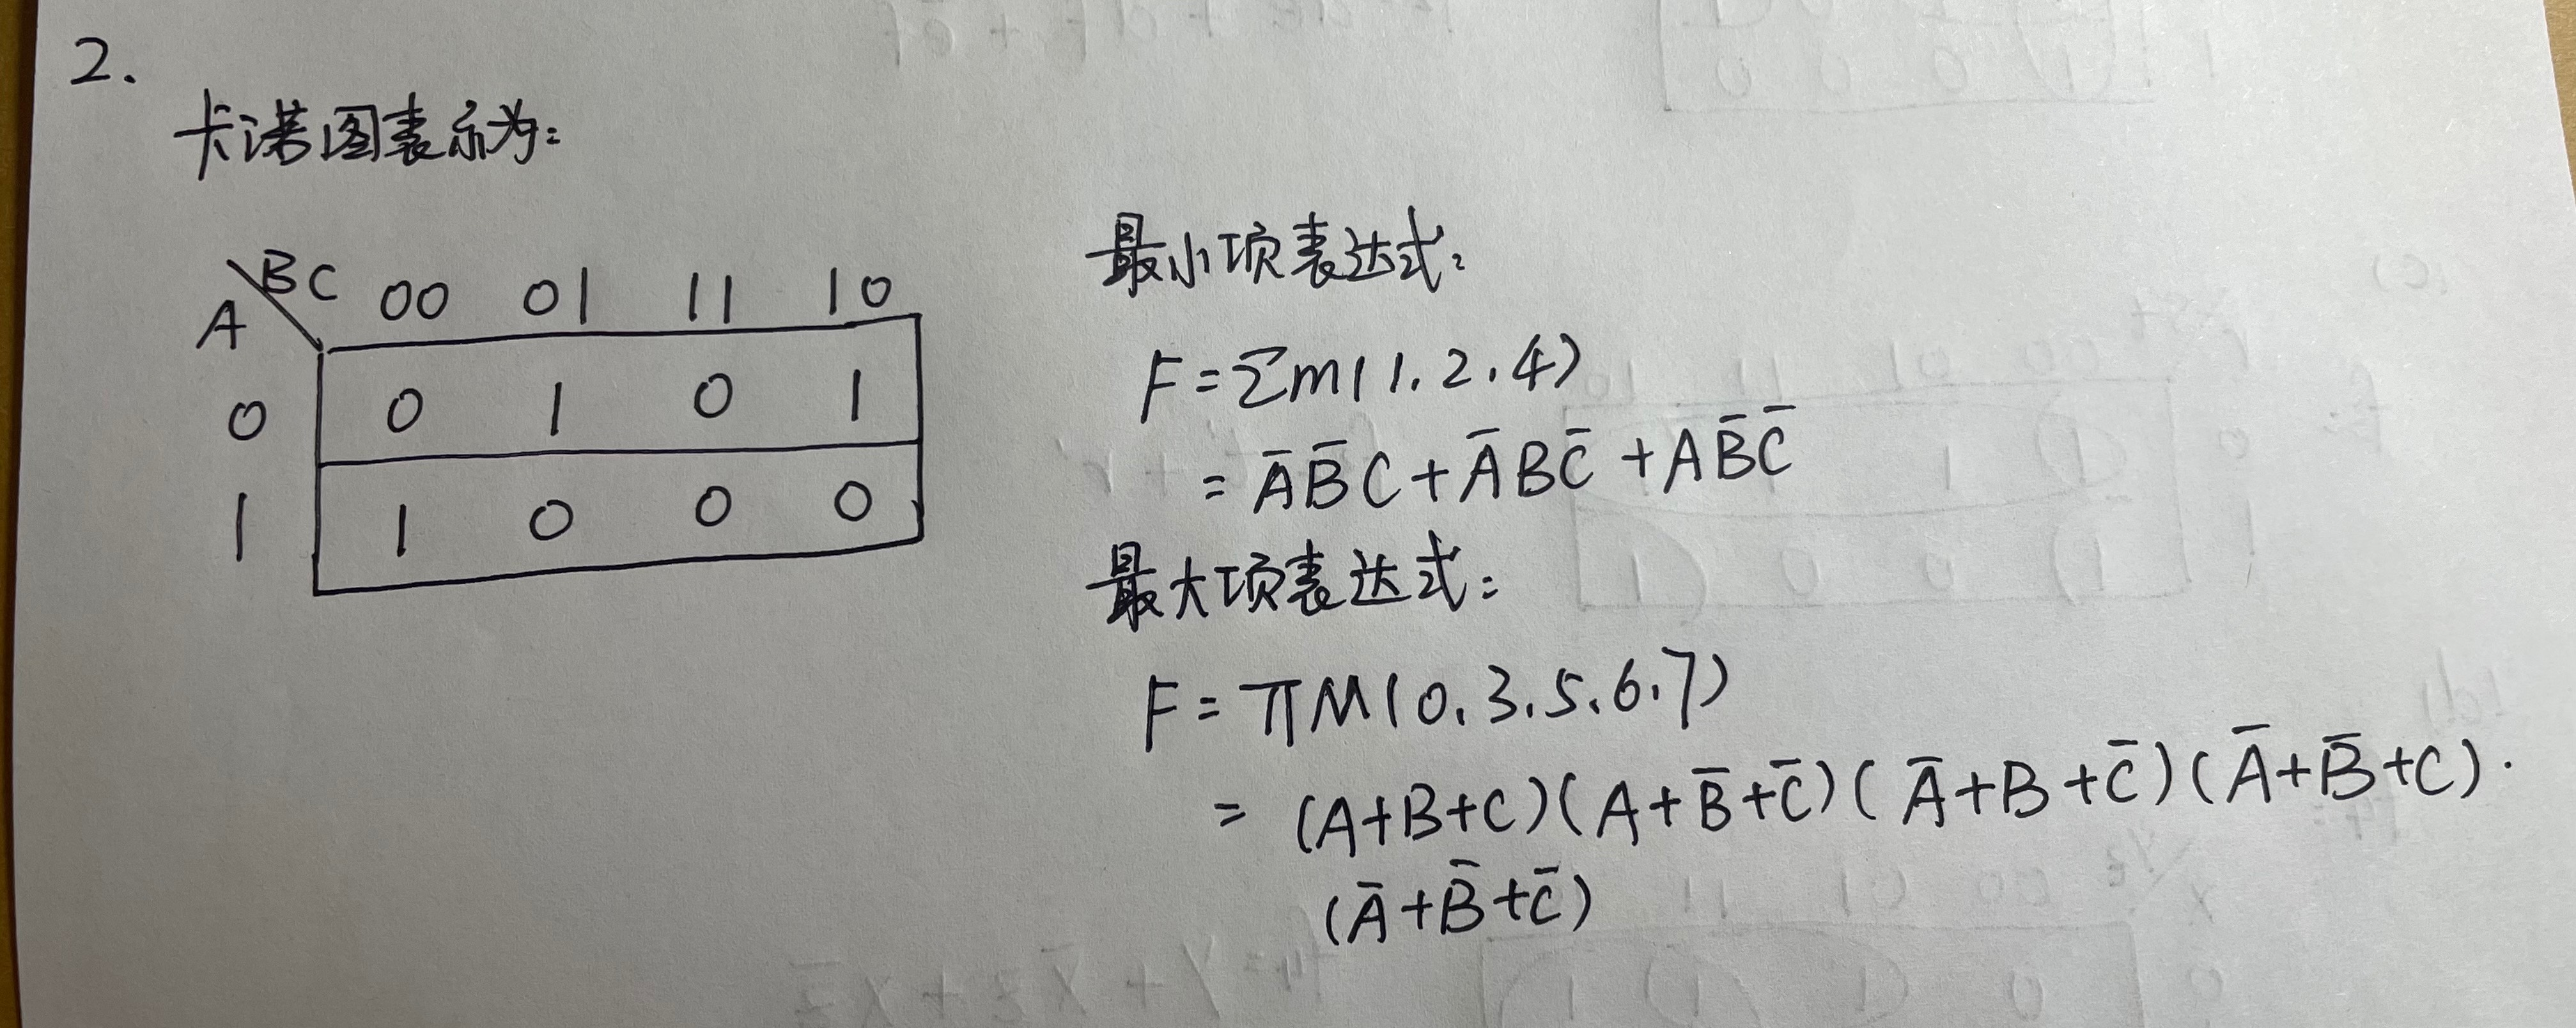 2.
卡诺图表示为:
A\BC 00 01 11 10
0 0 1 0 1
1 1 0 0 0
最小项表达式:
F=Σm(1.2.4)
= A̅B̅C+A̅BC̅+AB̅C̅
最大项表达式:
F=πM(0.3.5.6.7)
= (A+B+C)(A+B̅+C̅)(A̅+B+C̅)(A̅+B̅+C)·
(A̅+B̅+C̅)